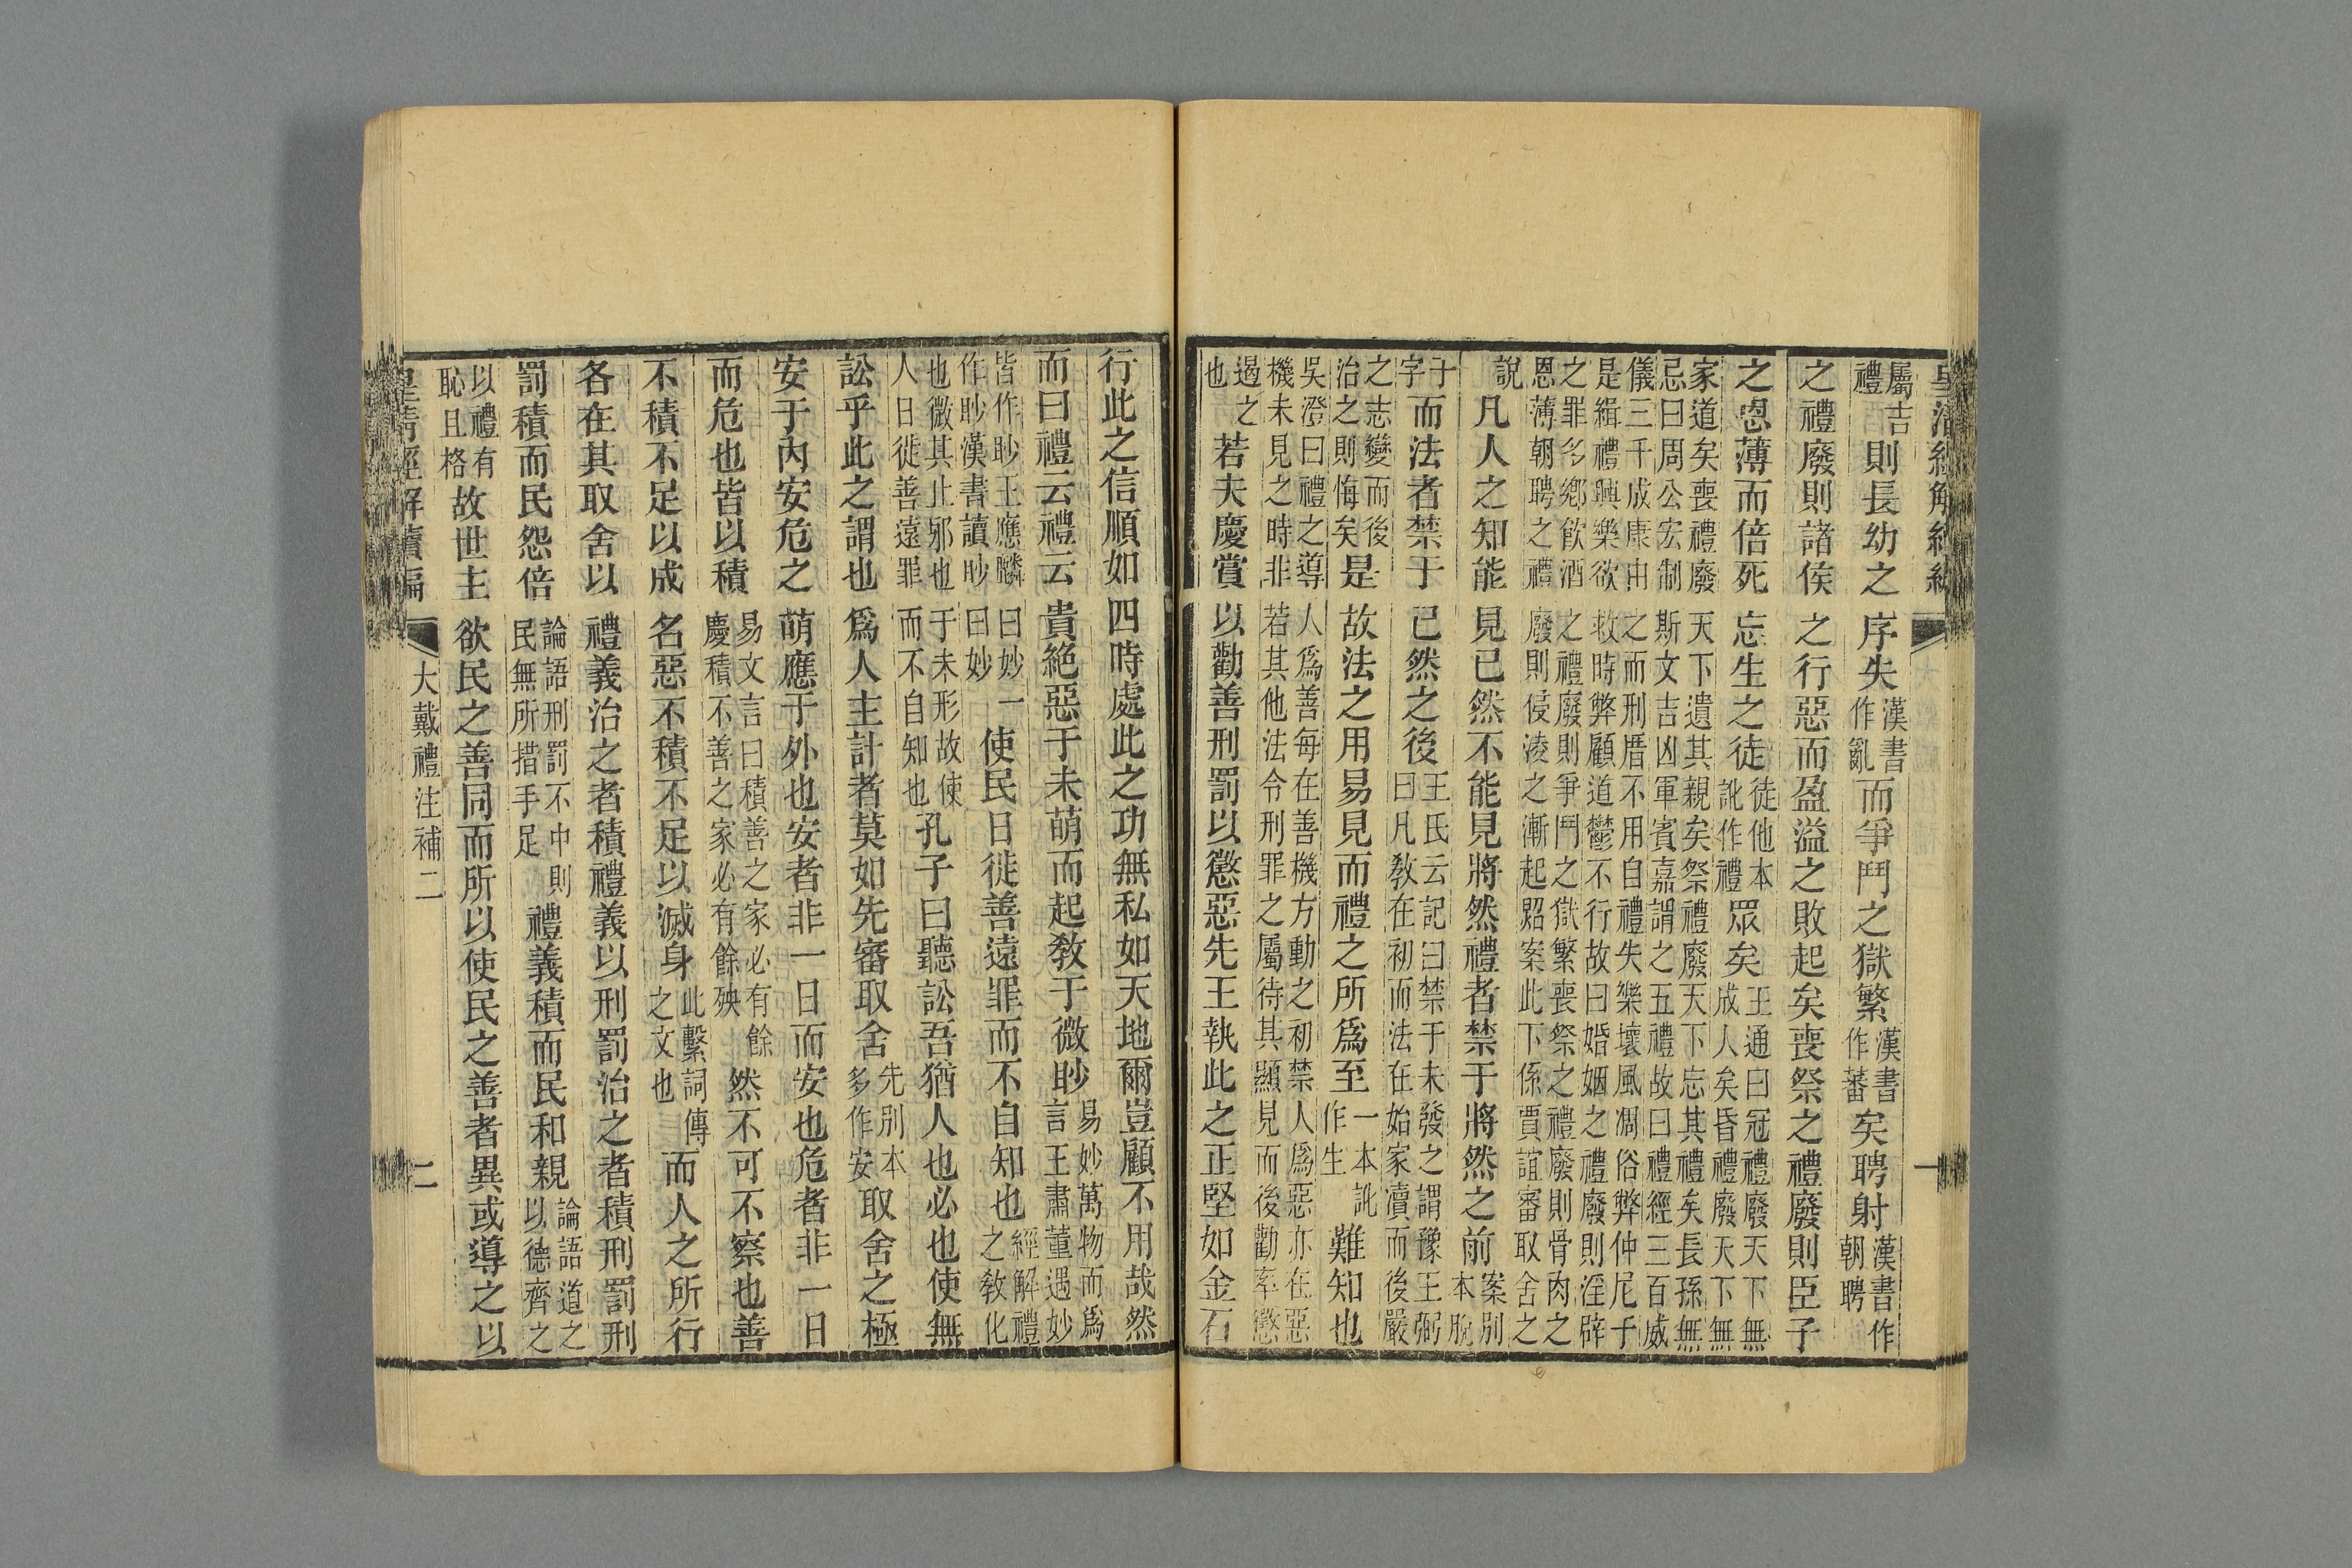 皇清經解續編 一
屬吉禮則長幼之序失漢書作亂而爭鬥之獄繁漢書作蕃矣聘射漢書作朝聘
之禮廢則諸侯之行惡而盈溢之敗起矣喪祭之禮廢則臣子
之恩薄而倍死忘生之徒徒他本訛作禮眾矣王通曰冠禮廢天下無成人矣昏禮廢天下無
家道矣喪禮廢天下遺其親矣祭禮廢天下忘其禮矣長孫無
忌曰周公宏制斯文吉凶軍賓嘉謂之五禮故曰禮經三百威
儀三千成康由之而刑厝不用自禮失樂壞風凋俗弊仲尼于
是緝禮興樂欲救時弊顧道鬱不行故曰婚姻之禮廢則淫辟
之罪多鄉飲酒之禮廢則爭鬥之獄繁喪祭之禮廢則骨肉之
恩薄朝聘之禮廢則侵淩之漸起照案此下係賈誼審取舍之
說凡人之知能見已然不能見將然禮者禁于將然之前案別本脫
于字而法者禁于已然之後王氏云記曰禁于未發之謂豫王弼曰凡敎在初而法在始家瀆而後嚴
之志變而後治之則悔矣是故法之用易見而禮之所爲至一本訛作生難知也
吳澄曰禮之導人爲善每在善機方動之初禁人爲惡亦在惡
機未見之時非若其他法令刑罪之屬待其顯見而後勸率懲
遏之也若夫慶賞以勸善刑罰以懲惡先王執此之正堅如金石
行此之信順如四時處此之功無私如天地爾豈顧不用哉然
而曰禮云禮云貴絶惡于未萌而起敎于微眇易妙萬物而爲言王肅董遇妙
皆作眇王應麟曰妙一作眇漢書讀眇曰妙使民日徙善遠罪而不自知也經解禮之敎化
也微其止邪也于未形故使人日徙善遠罪而不自知也孔子曰聽訟吾猶人也必也使無
訟乎此之謂也爲人主計者莫如先審取舍先別本多作安取舍之極
安于內安危之萌應于外也安者非一日而安也危者非一日
而危也皆以積易文言曰積善之家必有餘慶積不善之家必有餘殃然不可不察也善
不積不足以成名惡不積不足以滅身此繫詞傳之文也而人之所行
各在其取舍以禮義治之者積禮義以刑罰治之者積刑罰刑
罰積而民怨倍論語刑罰不中則民無所措手足禮義積而民和親論語道之以德齊之
以禮有恥且格故世主欲民之善同而所以使民之善者異或導之以
皇清經解續編 大戴禮注補二 二